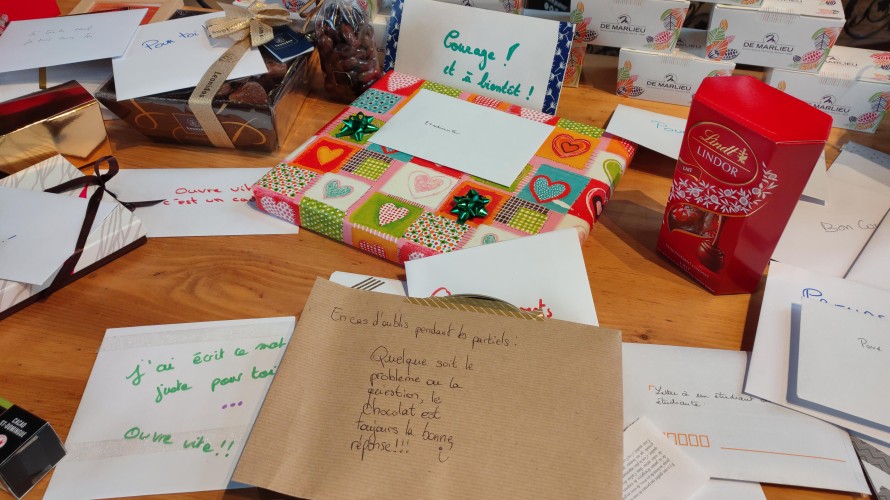 Pour toi
Leonidas
Courage !
et à bientôt !
DE MARLIEU
DE MARLIEU
DE MARLIEU
DE MARLIEU
DE MARLIEU
DE MARLIEU
Pour
Lindt
LINDOR
LAIT
Ouvre vite
c'est un
Bon
Pour
j'ai écrit ce mot
juste pour toi
...
Ouvre vite!!
En cas d'oublis pendant les partiels :
Quelque soit le
problème ou la
question, le
chocolat est
toujours la bonne
réponse!!!
Lettre à un étudiant
étudiante
CACAO